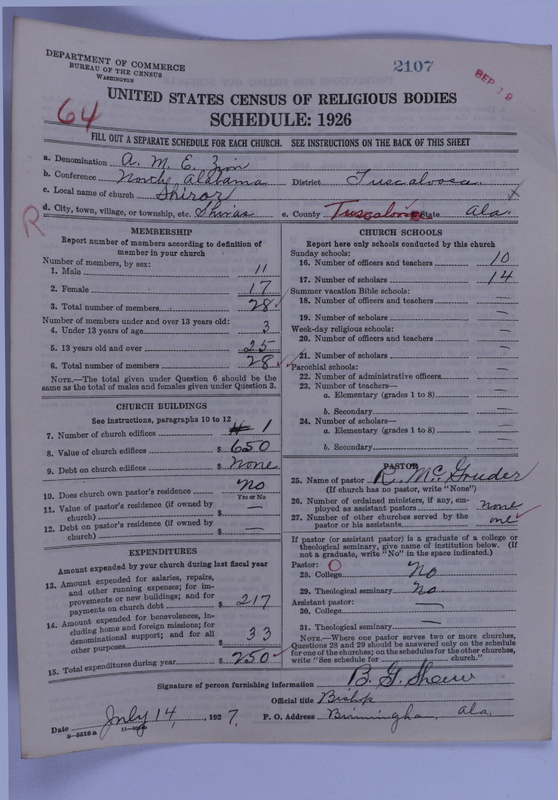 DEPARTMENT OF COMMERCE
BUREAU OF THE CENSUS
WASHINGTON
2107
SEP 19
64
UNITED STATES CENSUS OF RELIGIOUS BODIES
SCHEDULE: 1926
FILL OUT A SEPARATE SCHEDULE FOR EACH CHURCH. SEE INSTRUCTIONS ON THE BACK OF THIS SHEET
a. Denomination A. M. E. Zion
b. Conference North Alabama District Tuscaloosa
c. Local name of church Shiroz
d. City, town, village, or township, etc. Shiras e. County Tuscaloosa State Ala.
R
MEMBERSHIP
Report number of members according to definition of
member in your church
Number of members, by sex:
1. Male 11
2. Female 17
3. Total number of members 28
Number of members under and over 13 years old:
4. Under 13 years of age 3
5. 13 years old and over 25
6. Total number of members 28
NOTE.—The total given under Question 6 should be the
same as the total of males and females given under Question 3.
CHURCH BUILDINGS
See instructions, paragraphs 10 to 12
7. Number of church edifices 1
8. Value of church edifices $ 650
9. Debt on church edifices $ None
10. Does church own pastor's residence No
Yes or No
11. Value of pastor's residence (if owned by
church) $ —
12. Debt on pastor's residence (if owned by
church) $ —
EXPENDITURES
Amount expended by your church during last fiscal year
13. Amount expended for salaries, repairs,
and other running expenses; for im-
provements or new buildings; and for
payments on church debt $ 217
14. Amount expended for benevolences, in-
cluding home and foreign missions; for
denominational support; and for all
other purposes $ 33
15. Total expenditures during year $ 250
CHURCH SCHOOLS
Report here only schools conducted by this church
Sunday schools:
16. Number of officers and teachers 10
17. Number of scholars 14
Summer vacation Bible schools:
18. Number of officers and teachers —
19. Number of scholars —
Week-day religious schools:
20. Number of officers and teachers —
21. Number of scholars —
Parochial schools:
22. Number of administrative officers —
23. Number of teachers—
a. Elementary (grades 1 to 8) —
b. Secondary —
24. Number of scholars—
a. Elementary (grades 1 to 8) —
b. Secondary —
PASTOR
25. Name of pastor R. McGouder
(If church has no pastor, write "None")
26. Number of ordained ministers, if any, em-
ployed as assistant pastors none
27. Number of other churches served by the
pastor or his assistants one
If pastor (or assistant pastor) is a graduate of a college or
theological seminary, give name of institution below. (If
not a graduate, write "No" in the space indicated.)
Pastor:
28. College No
29. Theological seminary No
Assistant pastor:
30. College —
31. Theological seminary —
NOTE.—Where one pastor serves two or more churches,
Questions 28 and 29 should be answered only on the schedule
for one of the churches; on the schedules for the other churches,
write "See schedule for church."
Signature of person furnishing information B. G. Shaw
Official title Bishop
Date July 14, 1927. P. O. Address Birmingham, Ala